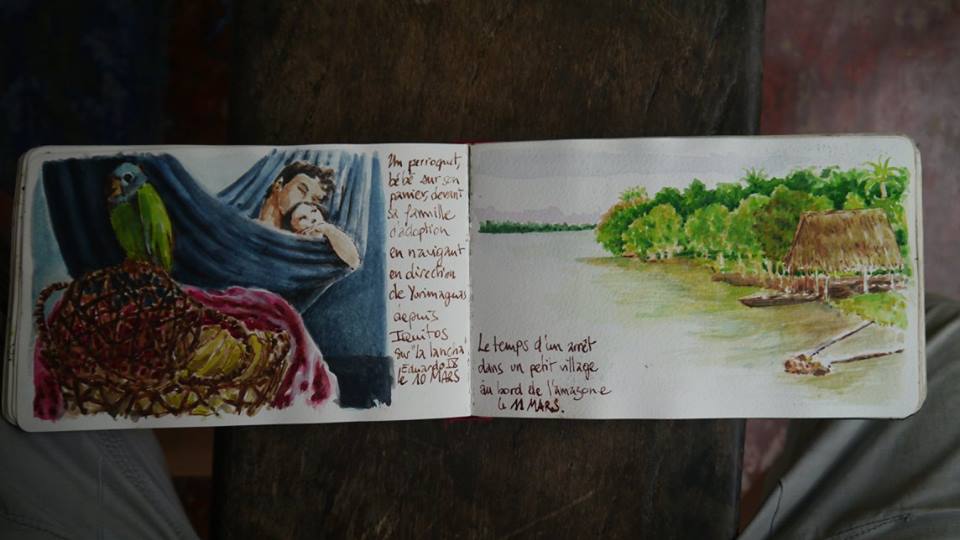 Un perroquet,
bébé sur son
panier, devant
sa famille
d'adoption
en navigant
en direction
de Yurimaguas
depuis
Iquitos
sur "la lancha"
Eduardo IX
le 10 MARS
Le temps d'un arrêt
dans un petit village
au bord de l'amazone
le 11 MARS.